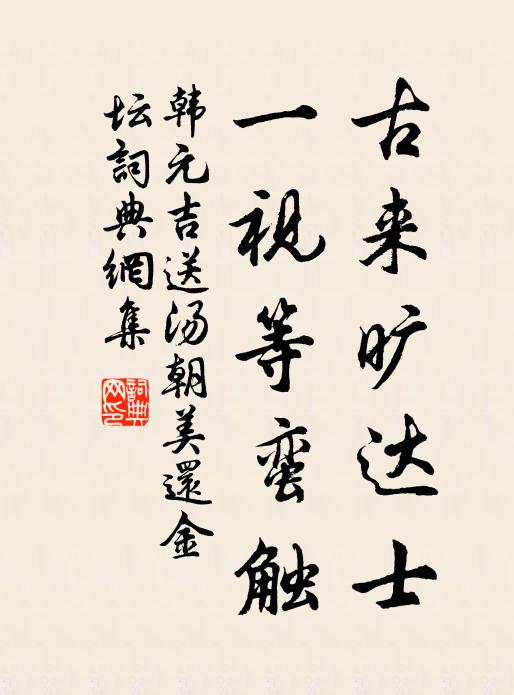 古来旷达士
一视等蛮触
韩元吉送汤朝美還金
坛詞典網集
詞典网印